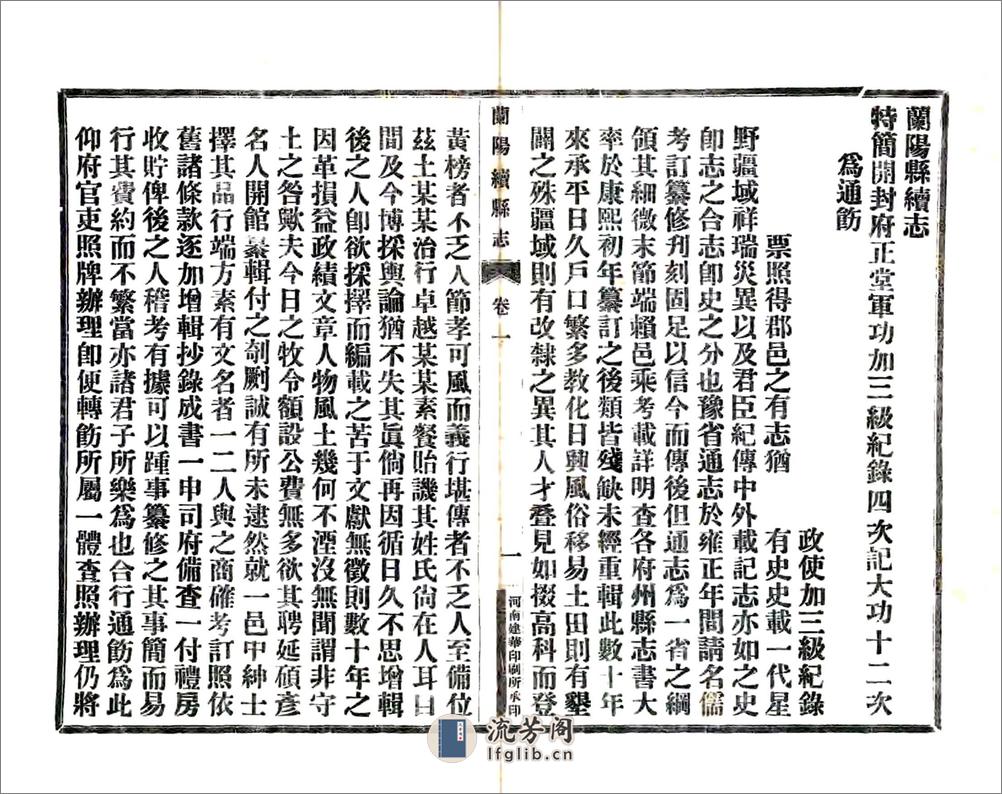 蘭陽縣續志
特簡開封府正堂軍功加三級紀錄四次記大功十二次
為通飭
政使加三級紀錄
票照得郡邑之有志猶
有史史載一代星
野疆域祥瑞災異以及君臣紀傳中外載記志亦如之史
卽志之合志卽史之分也豫省通志於雍正年間請名儒
考訂纂修刋刻固足以信今而傳後但通志為一省之綱
領其細微末簡端賴邑乘考載詳明查各府州縣志書大
率於康熙初年纂訂之後類皆殘缺未經重輯此數十年
來承平日久戶口繁多教化日興風俗移易土田則有墾
闢之殊疆域則有改隸之異其人才疊見如掇高科而登
蘭陽續縣志
卷一
一
河南建華印刷所承印
黃榜者不乏人節孝可風而義行堪傳者不乏人至備位
茲土某某治行卓越某某素餐貽譏其姓氏尙在人耳目
間及今博採輿論猶不失其眞倘再因循日久不思增輯
後之人卽欲採擇而編載之苦于文獻無徵則數十年之
因革損益政績文章人物風土幾何不湮沒無聞謂非守
土之咎歟夫今日之牧令額設公費無多欲其聘延碩彥
名人開館纂輯付之剞劂誠有所未逮然就一邑中紳士
擇其品行端方素有文名者一二人與之商確考訂照依
舊諸條款逐加增輯抄錄成書一申司府備查一付禮房
收貯俾後之人稽考有據可以踵事纂修之其事簡而易
行其費約而不繁當亦諸君子所樂為也合行通飭為此
仰府官吏照牌辦理卽便轉飭所屬一體查照辦理仍將
流芳阁
lfglib.cn